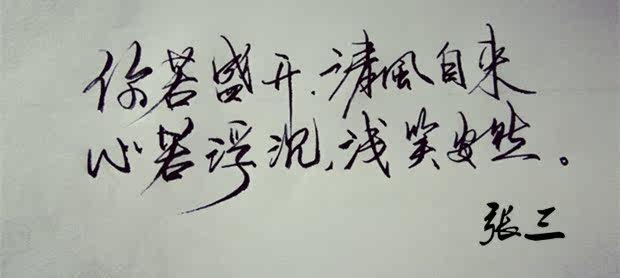 你若盛开,清风自来
心若浮沉,浅笑安然。
张三